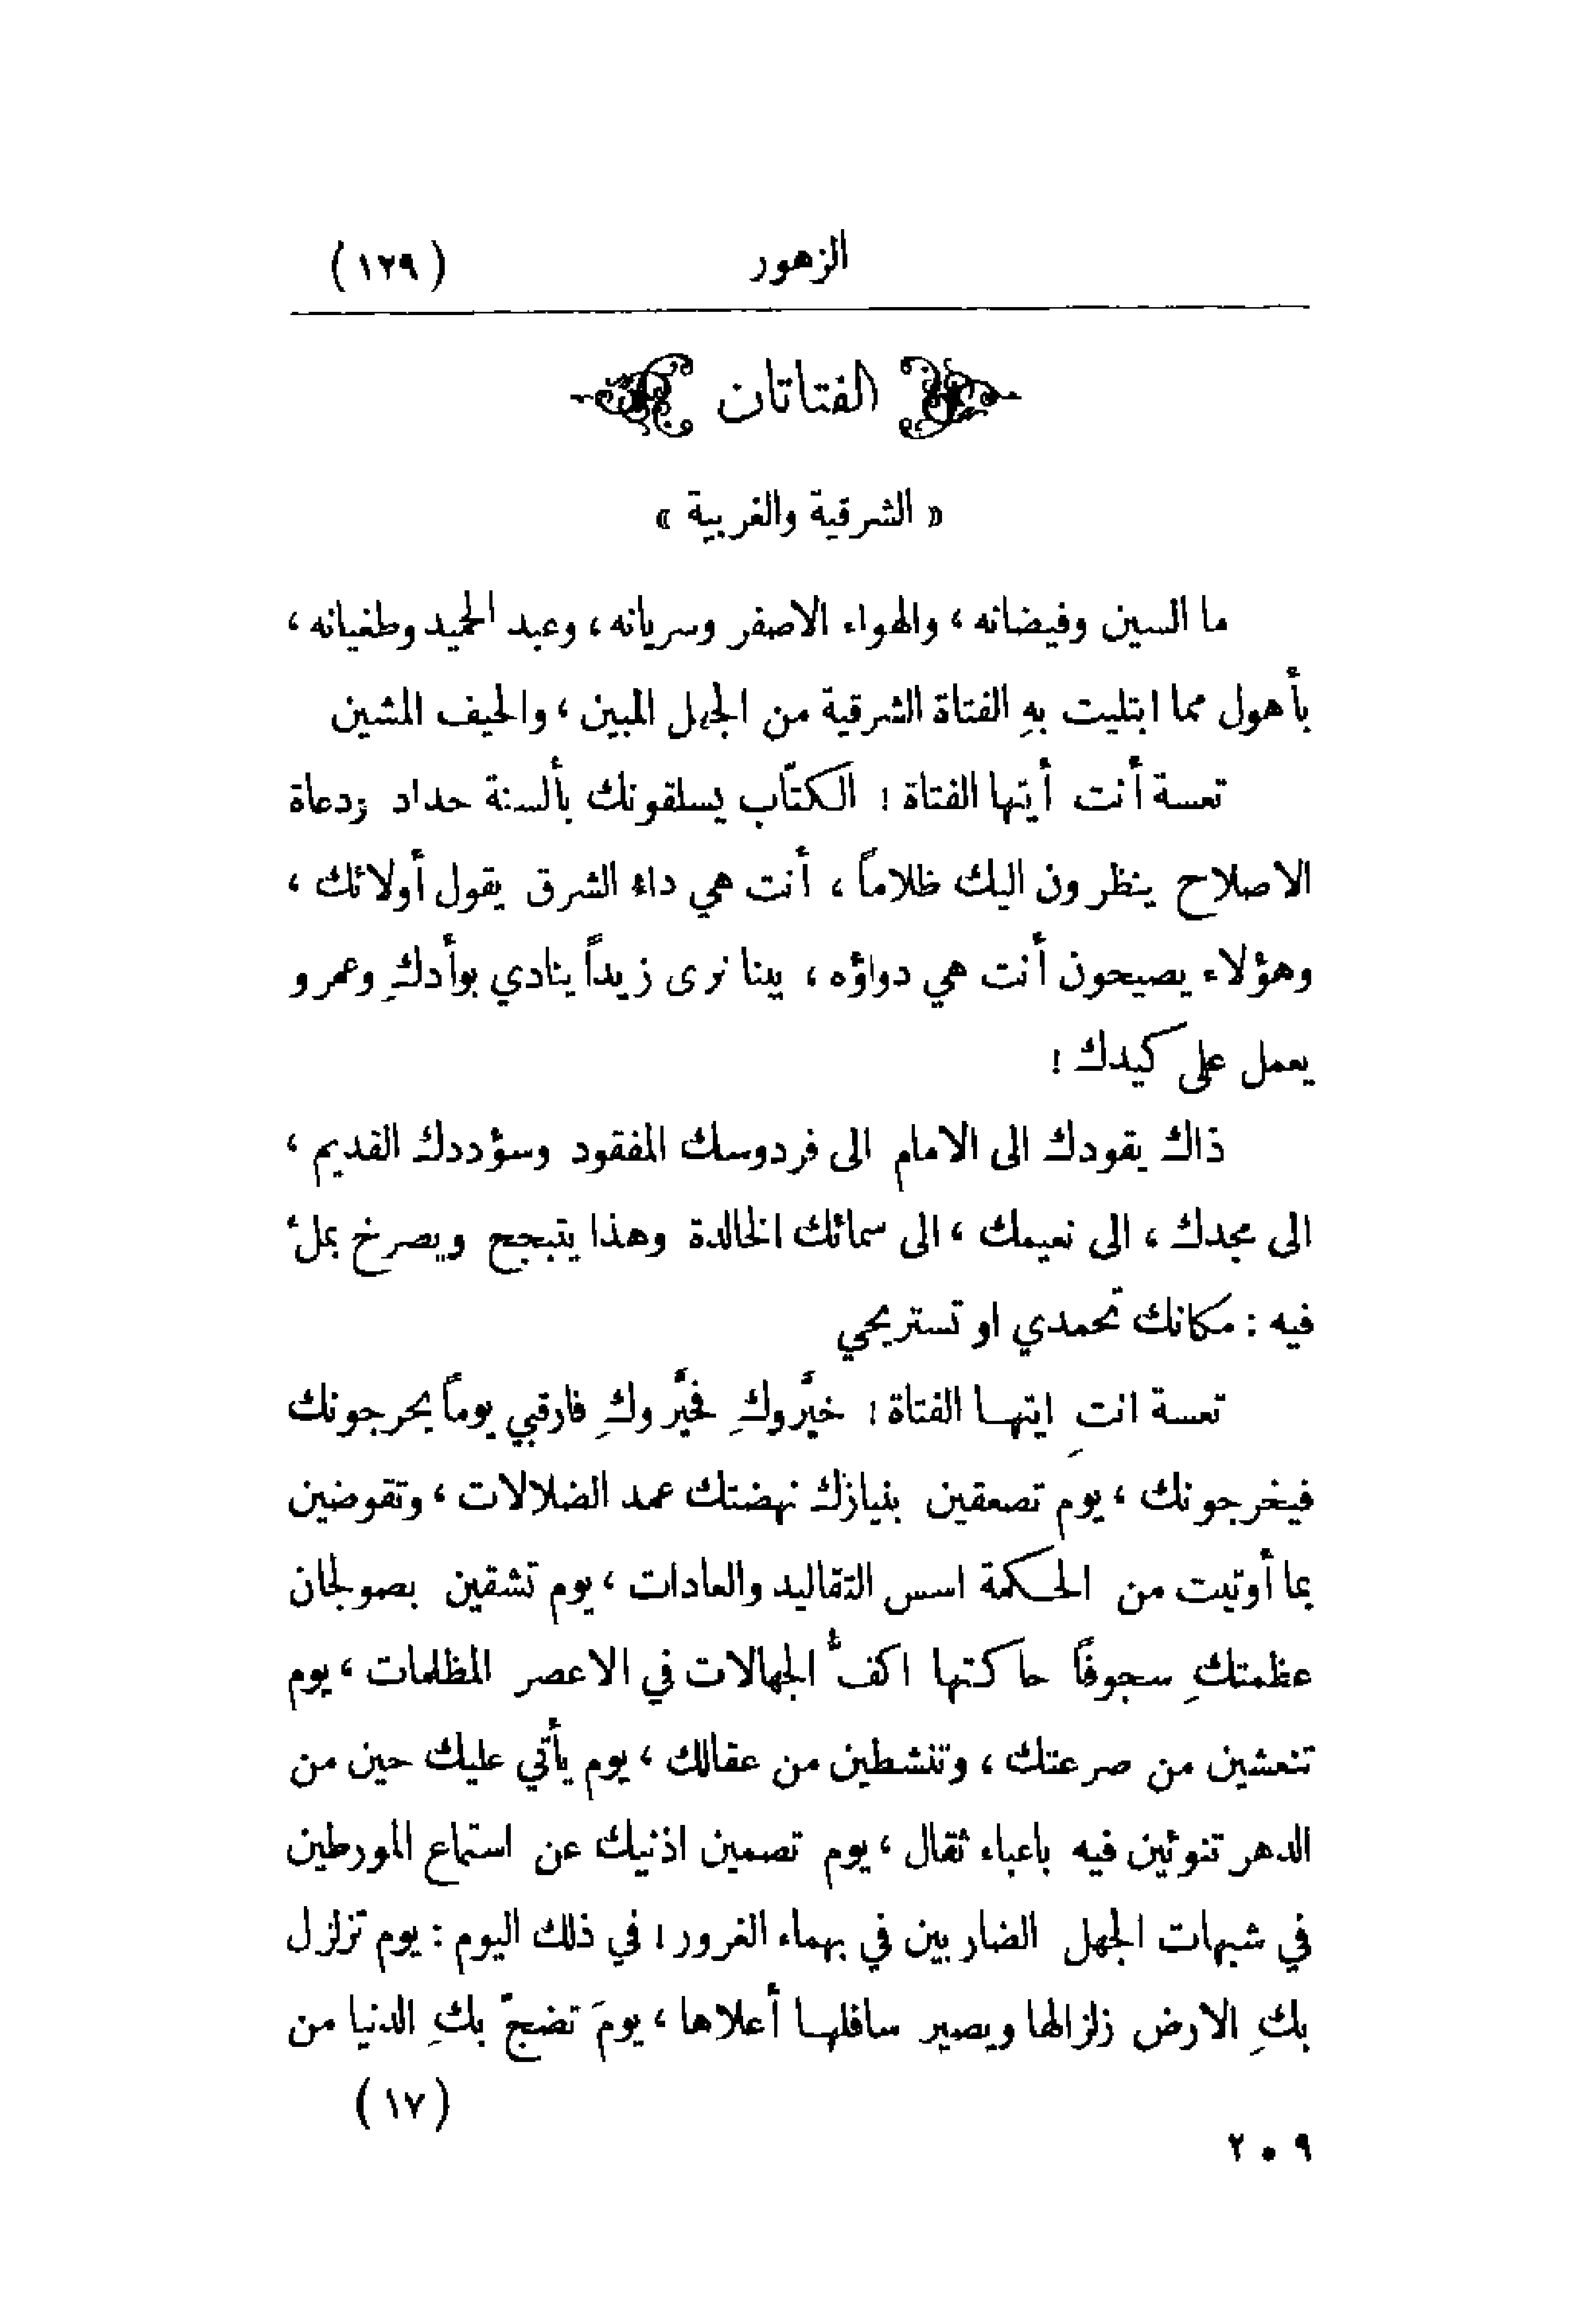 الزهور (١٢٩)
الفتاتان
« الشرقية والغربية »
ما السين وفيضانه ، والهواء الاصفر وسريانه ، وعبد الحميد وطغيانه ،
بأهول مما ابتليت بهِ الفتاة الشرقية من الجهل المبين ، والحيف المشين
تعسة أنت أيتها الفتاة ! الكتّاب يسلقونك بألسنة حداد ودعاة
الاصلاح ينظرون اليك ظلاماً ، أنت هي داء الشرق يقول أولائك ،
وهؤلاء يصيحون أنت هي دواؤه ، بينا نرى زيداً ينادي بوأدكِ وعمرو
يعمل على كيدك !
ذاك يقودك الى الامام الى فردوسك المفقود وسؤددك القديم ،
الى مجدك ، الى نعيمك ، الى سمائك الخالدة وهذا يتبجح ويصرخ بملء
فيه : مكانك تحمدي او تستريحي
تعسة انتِ ايتها الفتاة ! خيَّروكِ فخيَّروكِ فارقبي يوماً يحرجونك
فيخرجونك ، يوم تصعقين بنيازك نهضتك عمد الضلالات ، وتقوضين
بما أوتيت من الحكمة اسس التقاليد والعادات ، يوم تشقين بصولجان
عظمتكِ سجوفاً حاكتها اكفُّ الجهالات في الاعصر المظلمات ، يوم
تنعشين من صرعتك ، وتنشطين من عقالك ، يوم يأتي عليك حين من
الدهر تنوئين فيه باعباء ثقال ، يوم تصمين اذنيك عن استماع المورطين
في شبهات الجهل الضاربين في بهماء الغرور ! في ذلك اليوم : يوم تزلزل
بكِ الارض زلزالها ويصير سافلها أعلاها ، يومَ تضجّ بكِ الدنيا من
(١٧)
٢٠٩